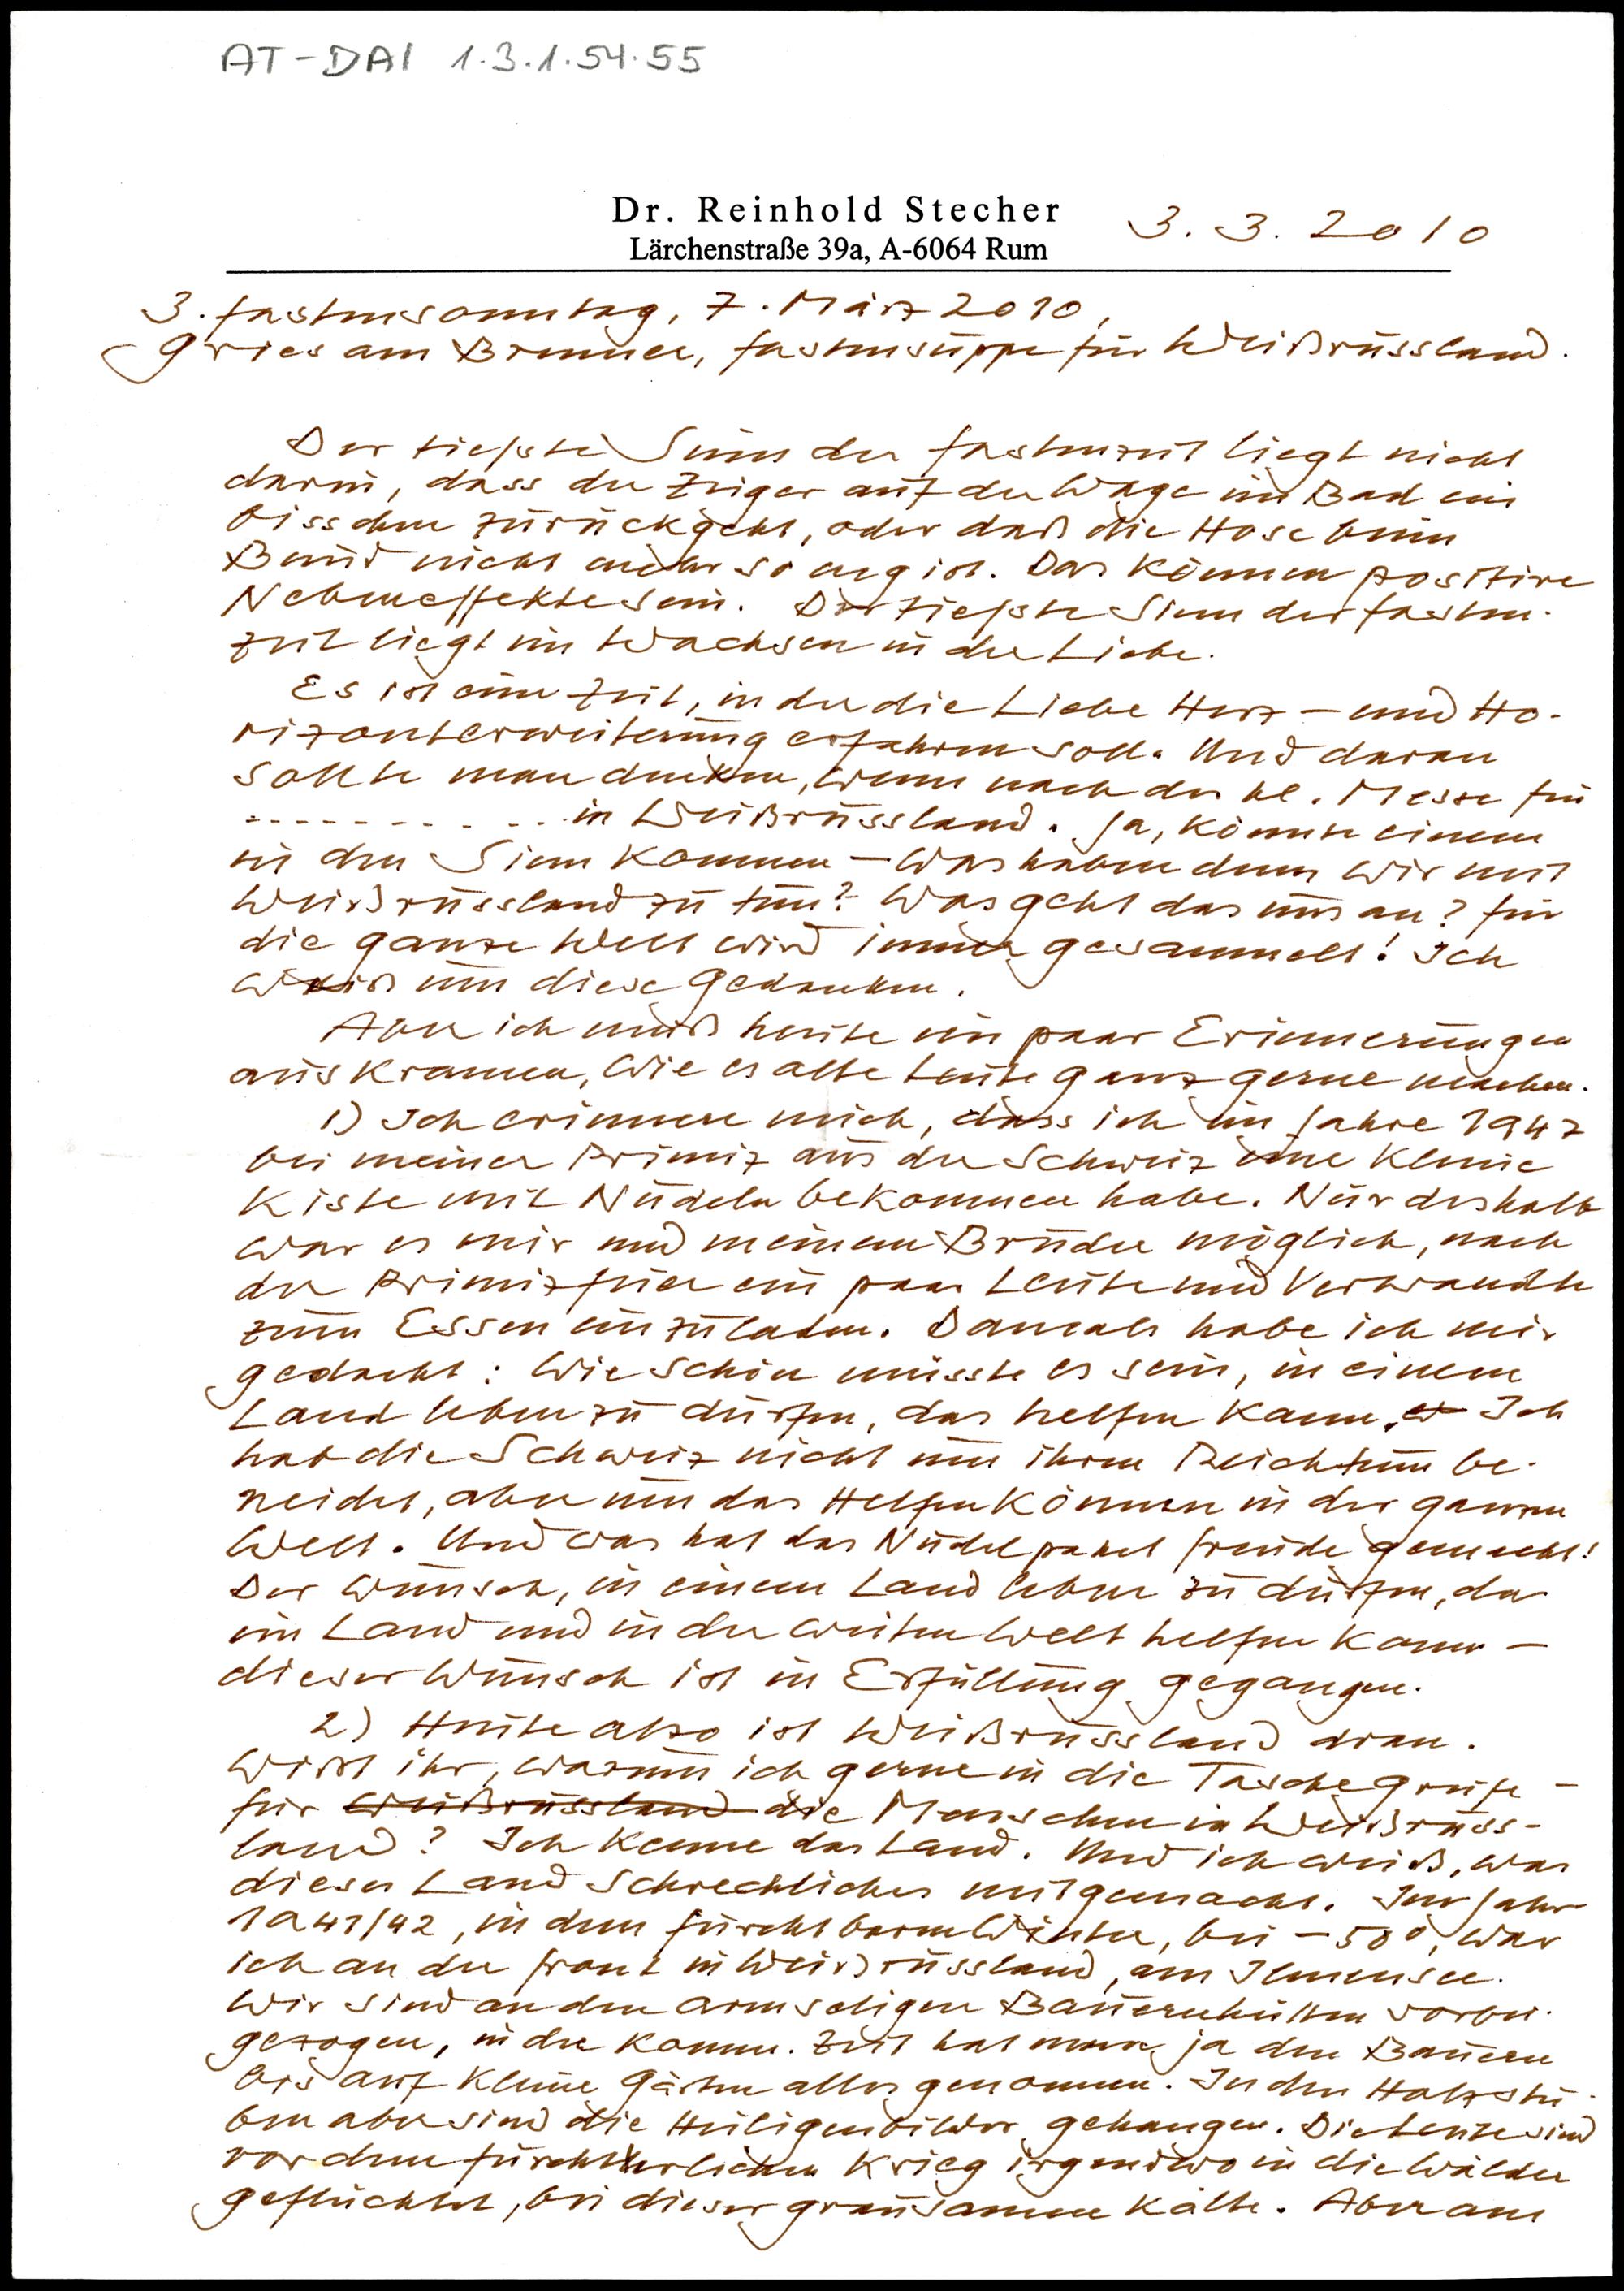 AT-DAI 1.3.1.54.55
Dr. Reinhold Stecher
3.3.2010
Lärchenstraße 39a, A-6064 Rum
3. Fastensonntag, 7. März 2010,
Gries am Brenner, Fastensuppe für Weißrussland.
Der tiefste Sinn der Fastenzeit liegt nicht
darin, dass der Zeiger auf der Wage im Bad ein
bisschen zurückgeht, oder daß die Hose beim
Bund nicht mehr so eng ist. Das können positive
Nebeneffekte sein. Der tiefste Sinn der Fasten-
zeit liegt im Wachsen in der Liebe.
Es ist eine Zeit, in der die Liebe Herz- und Ho-
rizonterweiterung erfahren soll. Und daran
sollte man denken, wenn nach der hl. Messe für
........... in Weißrussland. Ja, könnte einem
in den Sinn kommen – was haben denn wir mit
Weißrussland zu tun? Was geht das uns an? Für
die ganze Welt wird immer gesammelt! Ich
weiß um diese Gedanken.
Aber ich muß heute ein paar Erinnerungen
auskramen, wie es alte Leute ganz gerne machen.
1) Ich erinnere mich, dass ich im Jahre 1947
bei meiner Primiz aus der Schweiz eine kleine
Kiste mit Nudeln bekommen habe. Nur deshalb
war es mir und meinem Bruder möglich, nach
der Primizfeier ein paar Leute und Verwandte
zum Essen einzuladen. Damals habe ich mir
gedacht: Wie schön müsste es sein, in einem
Land leben zu dürfen, das helfen kann. Ich
hab die Schweiz nicht um ihren Reichtum be-
neidet, aber um das Helfen Können in der ganzen
Welt. Und was hat das Nudelpaket Freude gemacht!
Der Wunsch, in einem Land leben zu dürfen, das
im Land und in der weiten Welt helfen kann –
dieser Wunsch ist in Erfüllung gegangen.
2) Heute also ist Weißrussland dran.
Wißt ihr, warum ich gerne in die Tasche greife –
für Weißrussland die Menschen in Weißruss-
land? Ich kenne das Land. Und ich weiß, was
dieses Land Schreckliches mitgemacht. Im Jahr
1941/42, in dem furchtbaren Winter, bei -50°, war
ich an der Front in Weißrussland, am Ilmensee.
Wir sind an den armseligen Bauernhütten vorbei-
gezogen, in der komm. Zeit hat man ja den Bauern
bis auf kleine Gärten alles genommen. In den Holzstu-
ben aber sind die Heiligenbilder gehangen. Die Leute sind
vor dem fürchterlichen Krieg irgendwo in die Wälder
geflüchtet, bei dieser grausamen Kälte. Aber am